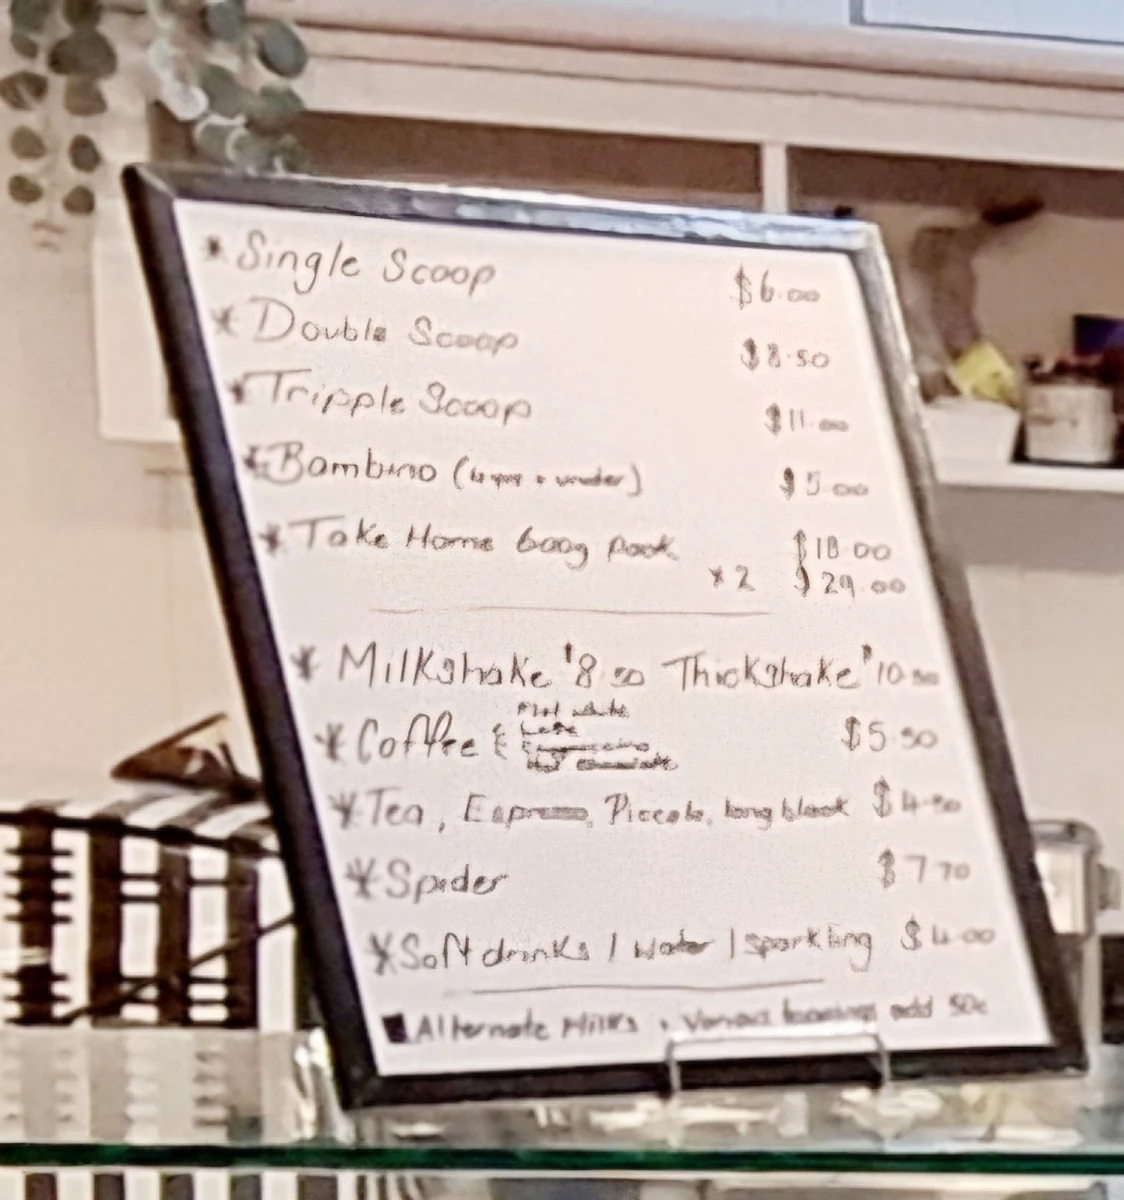 * Single Scoop $6.00
* Double Scoop $8.50
* Tripple Scoop $11.00
* Bambino ( under) $5.00
* Take Home 600g pack $18.00
x 2 $29.00
* Milkshake $8.50 Thickshake $10.50
Flat white
* Coffee { Latte $5.50
* Tea, Espresso, Piccolo, long black $4.50
* Spider $7.70
* Soft drinks / water / sparkling $4.00
Alternate Milks + Various add 50c